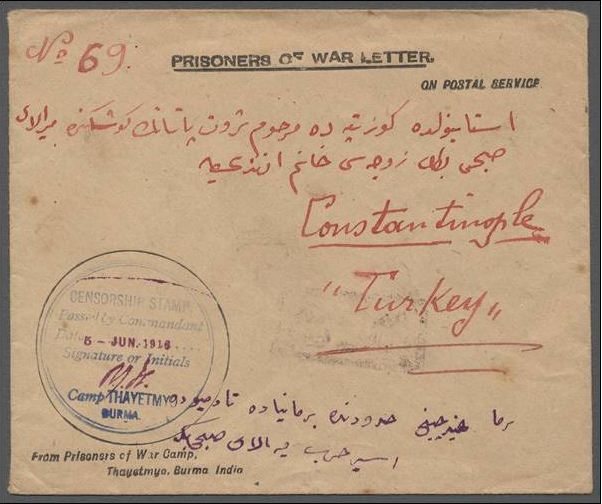 No 69.
PRISONERS OF WAR LETTER.
ON POSTAL SERVICE
استانبولده كوزتپه ده مرحوم ثروت پاشانك كوشكنده ميرالاى
صبحى بك زوجه سى خانم افندى يه
Constantinople
"Turkey"
CENSORSHIP STAMP
Passed by Commandant
Date
5 - JUN. 1916
Signature or Initials
Camp THAYETMYO
BURMA.
برما حدودنده برمانياده تايتميوده
اسير حرب صبحى بك
From Prisoners of War Camp,
Thayetmyo, Burma India